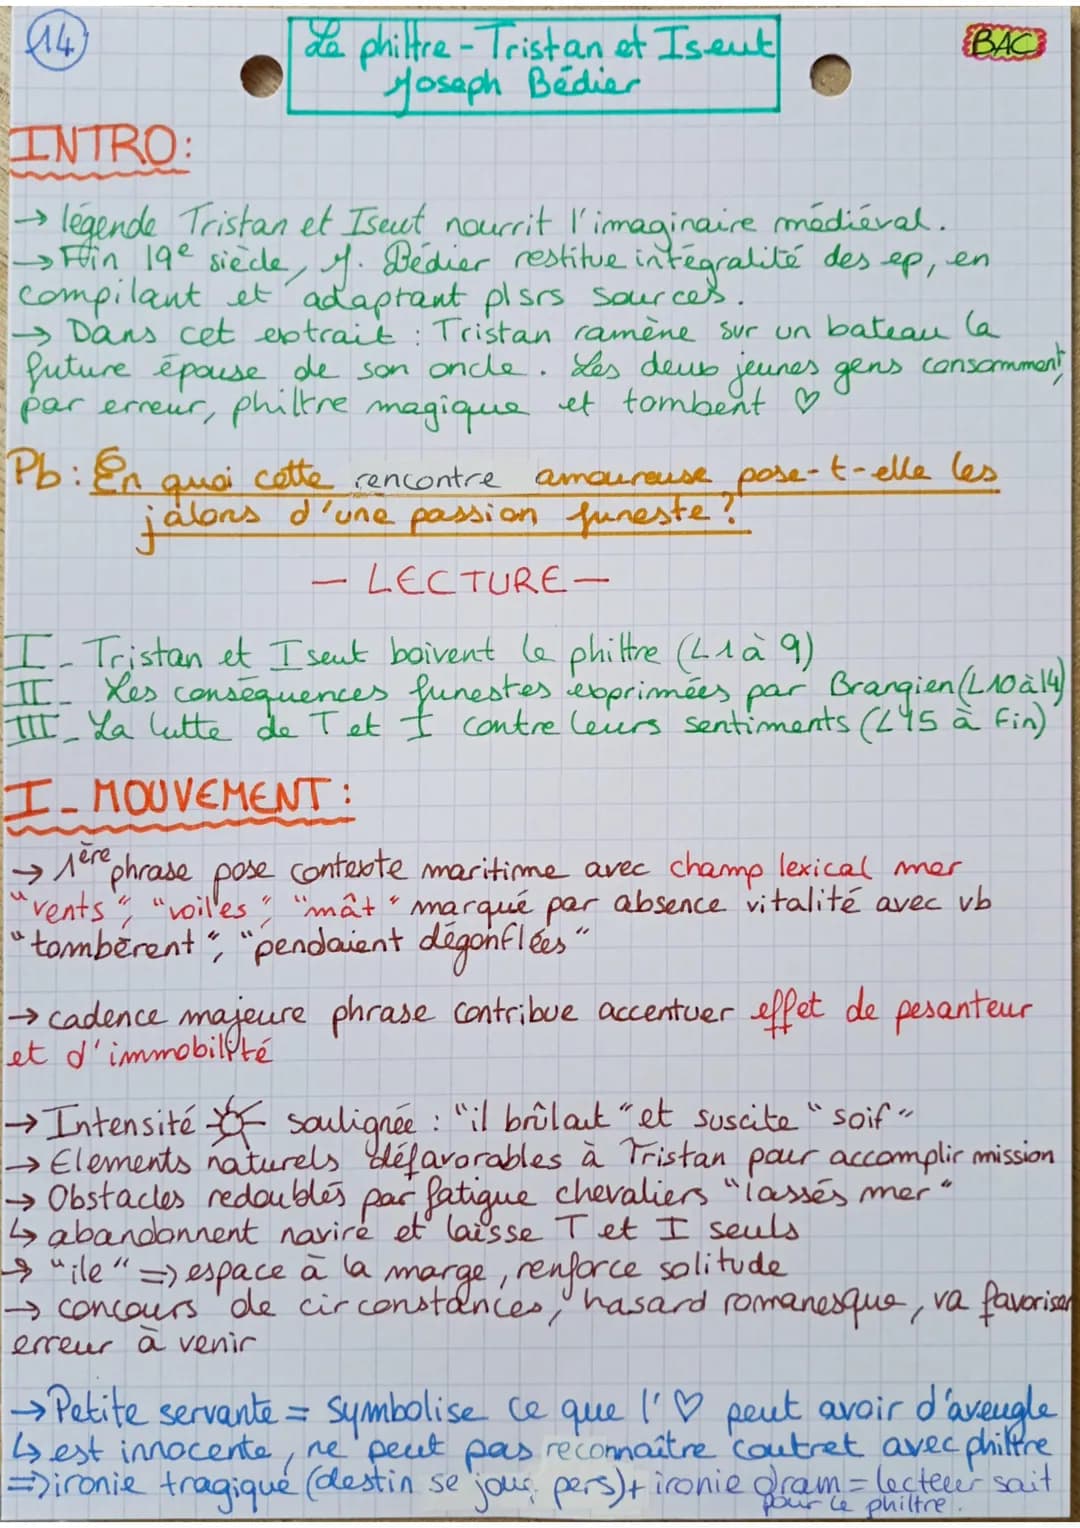 14
Le philtre - Tristan et Iseut
Joseph Bédier
BAC
INTRO:
→ légende Tristan et Iseut nourrit l'imaginaire médiéval.
→ Fin 19e siècle, J. Bédier restitue intégralité des ep, en
compilant et adaptant plsrs sources.
→ Dans cet extrait : Tristan ramène sur un bateau la
future épouse de son oncle. Les deux jeunes gens consomment,
par erreur, philtre magique et tombent ♡
Pb : En quoi cette rencontre amoureuse pose-t-elle les
jalons d'une passion funeste ?
— LECTURE —
I - Tristan et Iseut boivent le philtre (L1 à 9)
II - Les conséquences funestes exprimées par Brangien (L10 à 14)
III - La lutte de T et I contre leurs sentiments (L15 à fin)
I - MOUVEMENT :
→ 1ère phrase pose contexte maritime avec champ lexical mer
"vents", "voiles", "mât" marqué par absence vitalité avec vb
"tombèrent", "pendaient dégonflées"
→ cadence majeure phrase contribue accentuer effet de pesanteur
et d'immobilité
→ Intensité ☼ soulignée : "il brûlait" et suscite "soif"
→ Elements naturels défavorables à Tristan pour accomplir mission
→ Obstacles redoublés par fatigue chevaliers "lassés mer"
↳ abandonnent navire et laisse T et I seuls
→ "ile" => espace à la marge, renforce solitude
→ concours de circonstances, hasard romanesque, va favoriser
erreur à venir
→ Petite servante = symbolise ce que l'♡ peut avoir d'aveugle
↳ est innocente, ne peut pas reconnaître coutret avec philtre
=> ironie tragique (destin se joue pers) + ironie dram = lecteur sait
pour le philtre.